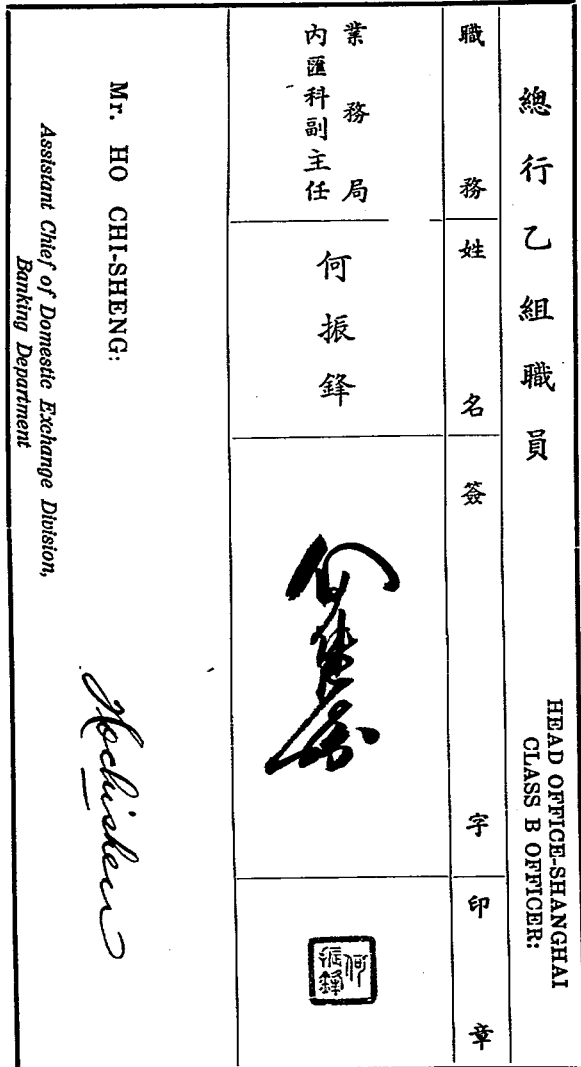 總行乙組職員
HEAD OFFICE-SHANGHAI
CLASS B OFFICER:
職務
姓名
簽字
印章
業務局
內匯科副主任
何振鋒
何振鋒
Mr. HO CHI-SHENG:
Assistant Chief of Domestic Exchange Division,
Banking Department
Hochishen